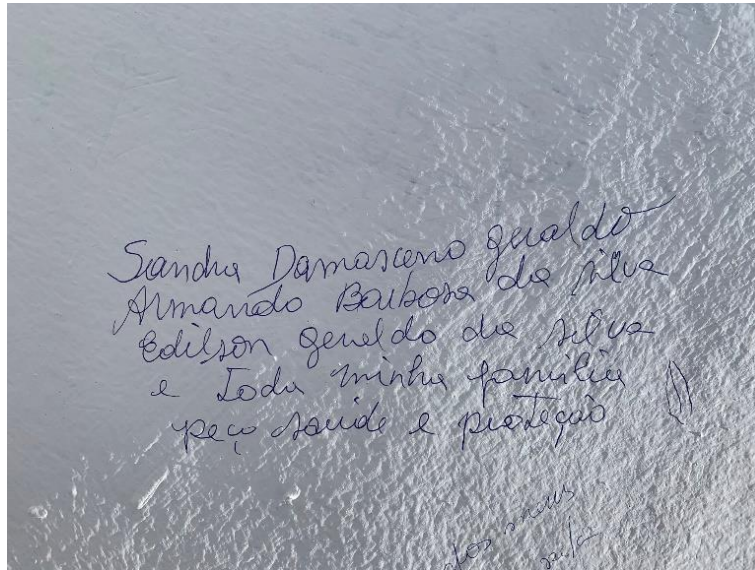 Sandra Damasceno geraldo
Armando Barbosa da silva
Edilson geraldo da silva
e Toda minha familia
peço saude e proteção
dos meus